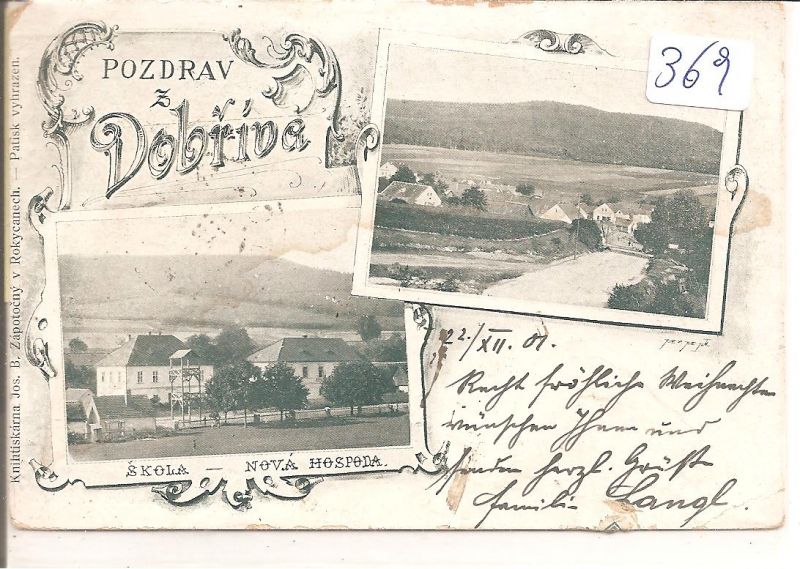 POZDRAV
z
Dobříva
369
Knihtiskárna Jos. B. Zápotočný v Rokycanech. — Patisk vyhrazen.
ŠKOLA — NOVÁ HOSPODA.
22./XII. 01.
Recht fröhliche Weihnachten
wünschen Ihnen und
senden herzl. Grüße
Familie Langl.